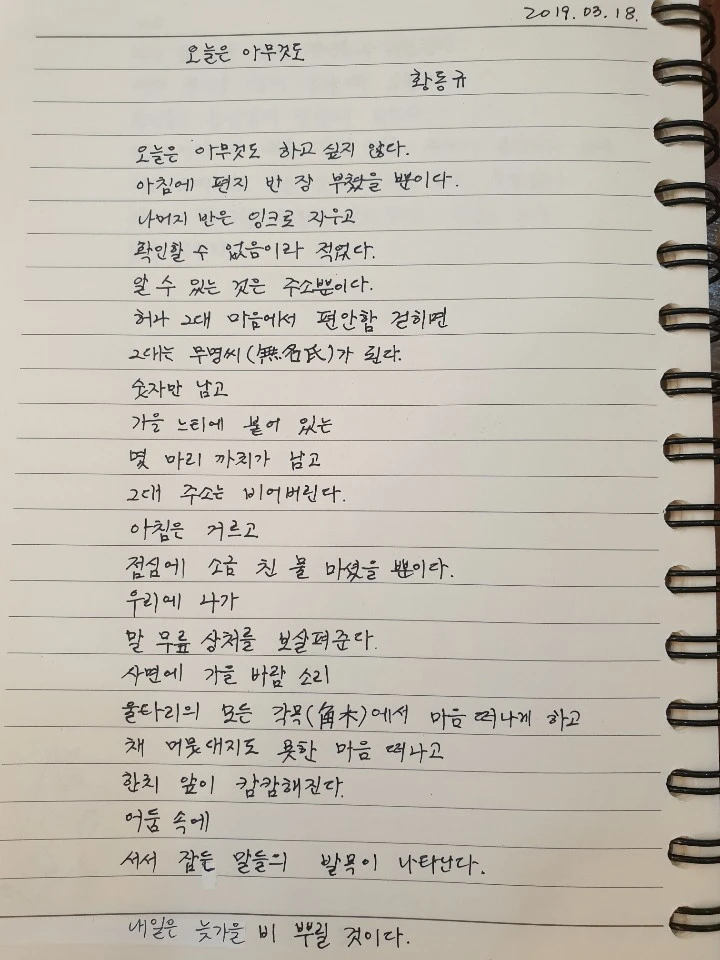 2019. 03. 18.
오늘은 아무것도
황동규
오늘은 아무것도 하고 싶지 않다.
아침에 편지 반 장 부쳤을 뿐이다.
나머지 반은 잉크로 지우고
확인할 수 없음이라 적었다.
알 수 있는 것은 주소뿐이다.
허나 그대 마음에서 편안함 걷히면
그대는 무명씨(無名氏)가 된다.
숫자만 남고
가을 느티에 붙어 있는
몇 마리 까치가 남고
그대 주소는 비어버린다.
아침은 거르고
점심에 소금 친 물 마셨을 뿐이다.
우리에 나가
말 무릎 상처를 보살펴준다.
사면에 가을 바람 소리
울타리의 모든 각목(角木)에서 마음 떠나게 하고
채 머뭇대지도 못한 마음 떠나고
한치 앞이 캄캄해진다.
어둠 속에
서서 잠든 말들의 발목이 나타난다.
내일은 늦가을 비 뿌릴 것이다.